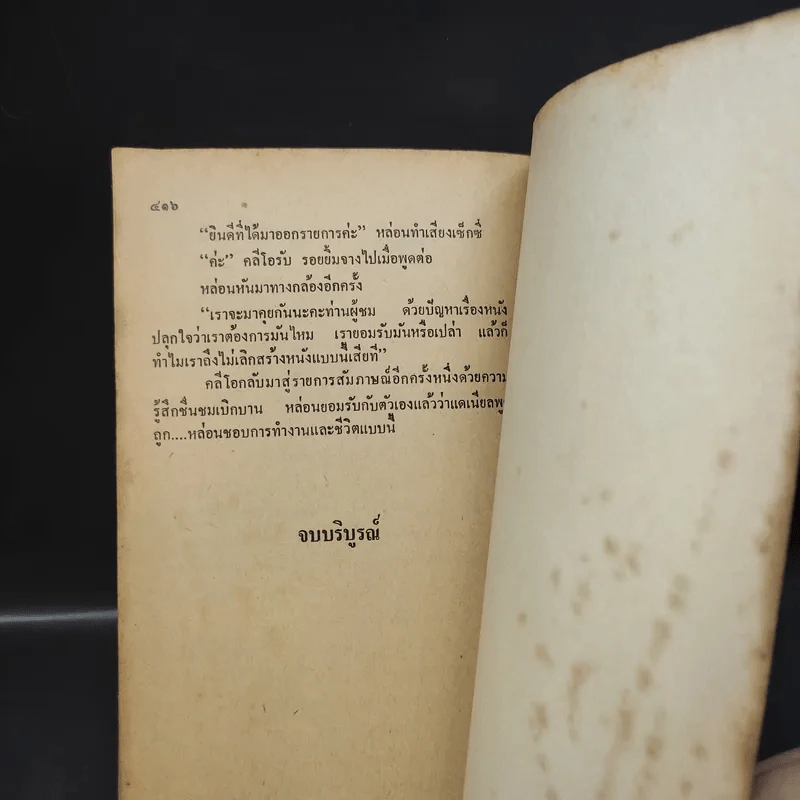 ๔๑๖
“ยินดีที่ได้มาออกรายการค่ะ” หล่อนทำเสียงเซ็กซี่
“ค่ะ” คลีโอรับ รอยยิ้มจางไปเมื่อพูดต่อ
หล่อนหันมาทางกล้องอีกครั้ง
“เราจะมาคุยกันนะคะท่านผู้ชม ด้วยปัญหาเรื่องหนัง
ปลุกใจว่าเราต้องการมันไหม เรายอมรับมันหรือเปล่า แล้วก็
ทำไมเราถึงไม่เลิกสร้างหนังแบบนี้เสียที”
คลีโอกลับมาสู่รายการสัมภาษณ์อีกครั้งหนึ่งด้วยความ
รู้สึกชื่นชมเบิกบาน หล่อนยอมรับกับตัวเองแล้วว่าแดเนียล
ถูก....หล่อนชอบการทำงานและชีวิตแบบนี้
จบบริบูรณ์